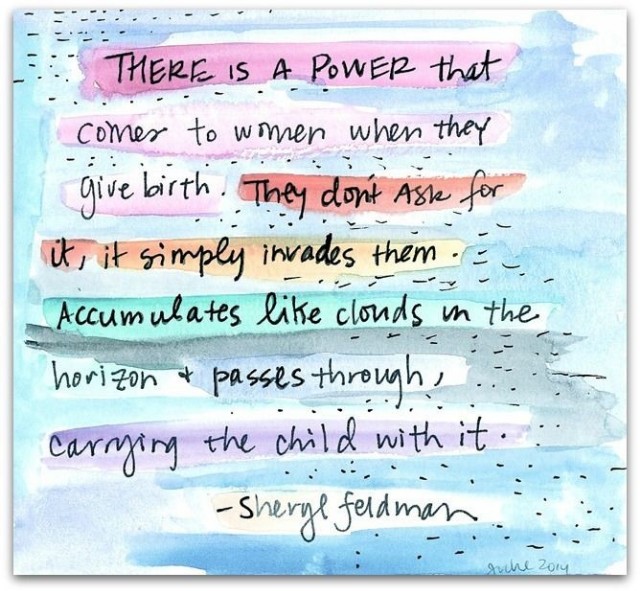 THERE IS A POWER that
comes to women when they
give birth. They don't Ask for
it, it simply invades them.
Accumulates like clouds in the
horizon + passes through,
carrying the child with it.
-Sheryl Feldman
2014